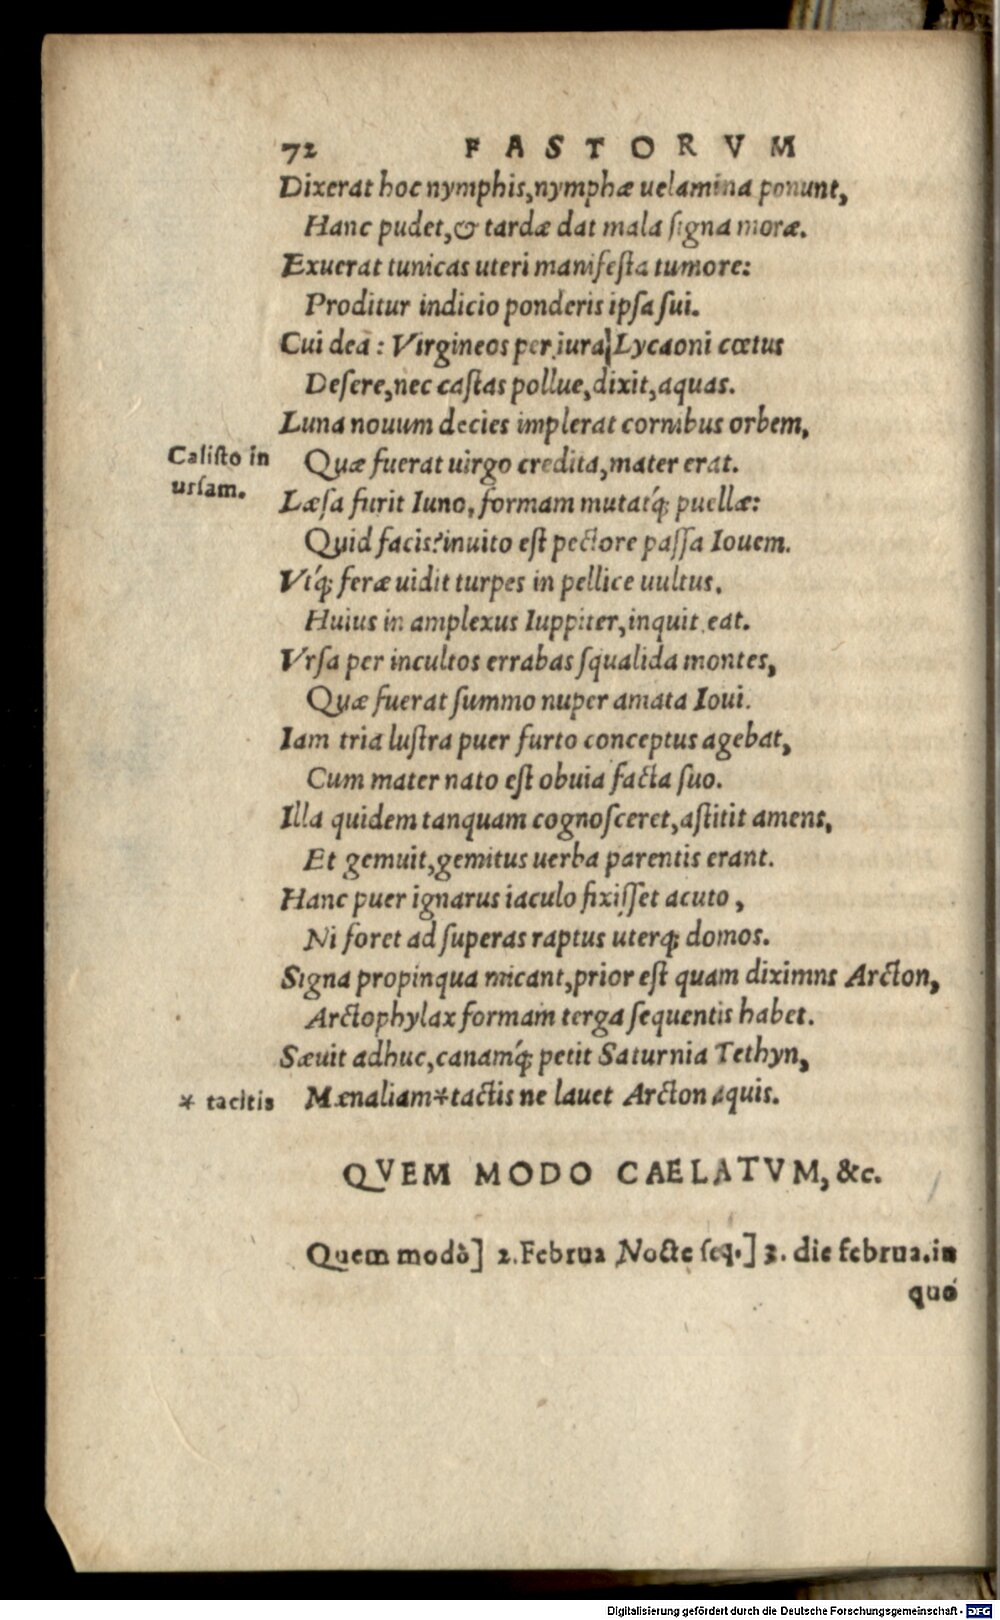 72 FASTORVM
Dixerat hoc nymphis, nymphæ uelamina ponunt,
Hanc pudet, & tardæ dat mala ſigna moræ.
Exuerat tunicas uteri manifeſta tumore:
Proditur indicio ponderis ipſa ſui.
Cui dea: Virgineos periura Lycaoni cœtus
Deſere, nec caſtas pollue, dixit, aquas.
Luna nouum decies implerat cornibus orbem,
Caliſto in
urſam.
Quæ fuerat uirgo credita, mater erat.
Læſa furit Iuno, formam mutatq́; puellæ:
Quid facis? inuito eſt pectore paſſa Iouem.
Vtq́; feræ uidit turpes in pellice uultus,
Huius in amplexus Iuppiter, inquit, eat.
Vrſa per incultos errabas ſqualida montes,
Quæ fuerat ſummo nuper amata Ioui.
Iam tria luſtra puer furto conceptus agebat,
Cum mater nato eſt obuia facta ſuo.
Illa quidem tanquam cognoſceret, aſtitit amens,
Et gemuit, gemitus uerba parentis erant.
Hanc puer ignarus iaculo fixiſſet acuto,
Ni foret ad ſuperas raptus uterq; domos.
Signa propinqua micant, prior eſt quam diximns Arcton,
Arctophylax formam terga ſequentis habet.
Sæuit adhuc, canamq́; petit Saturnia Tethyn,
* tacitis
Mænaliam*tactis ne lauet Arcton aquis.
QVEM MODO CAELATVM, &c.
Quem modò] 2. Februa Nocte ſeq.] 3. die februa. in
quo
Digitalisierung gefördert durch die Deutsche Forschungsgemeinschaft - DFG